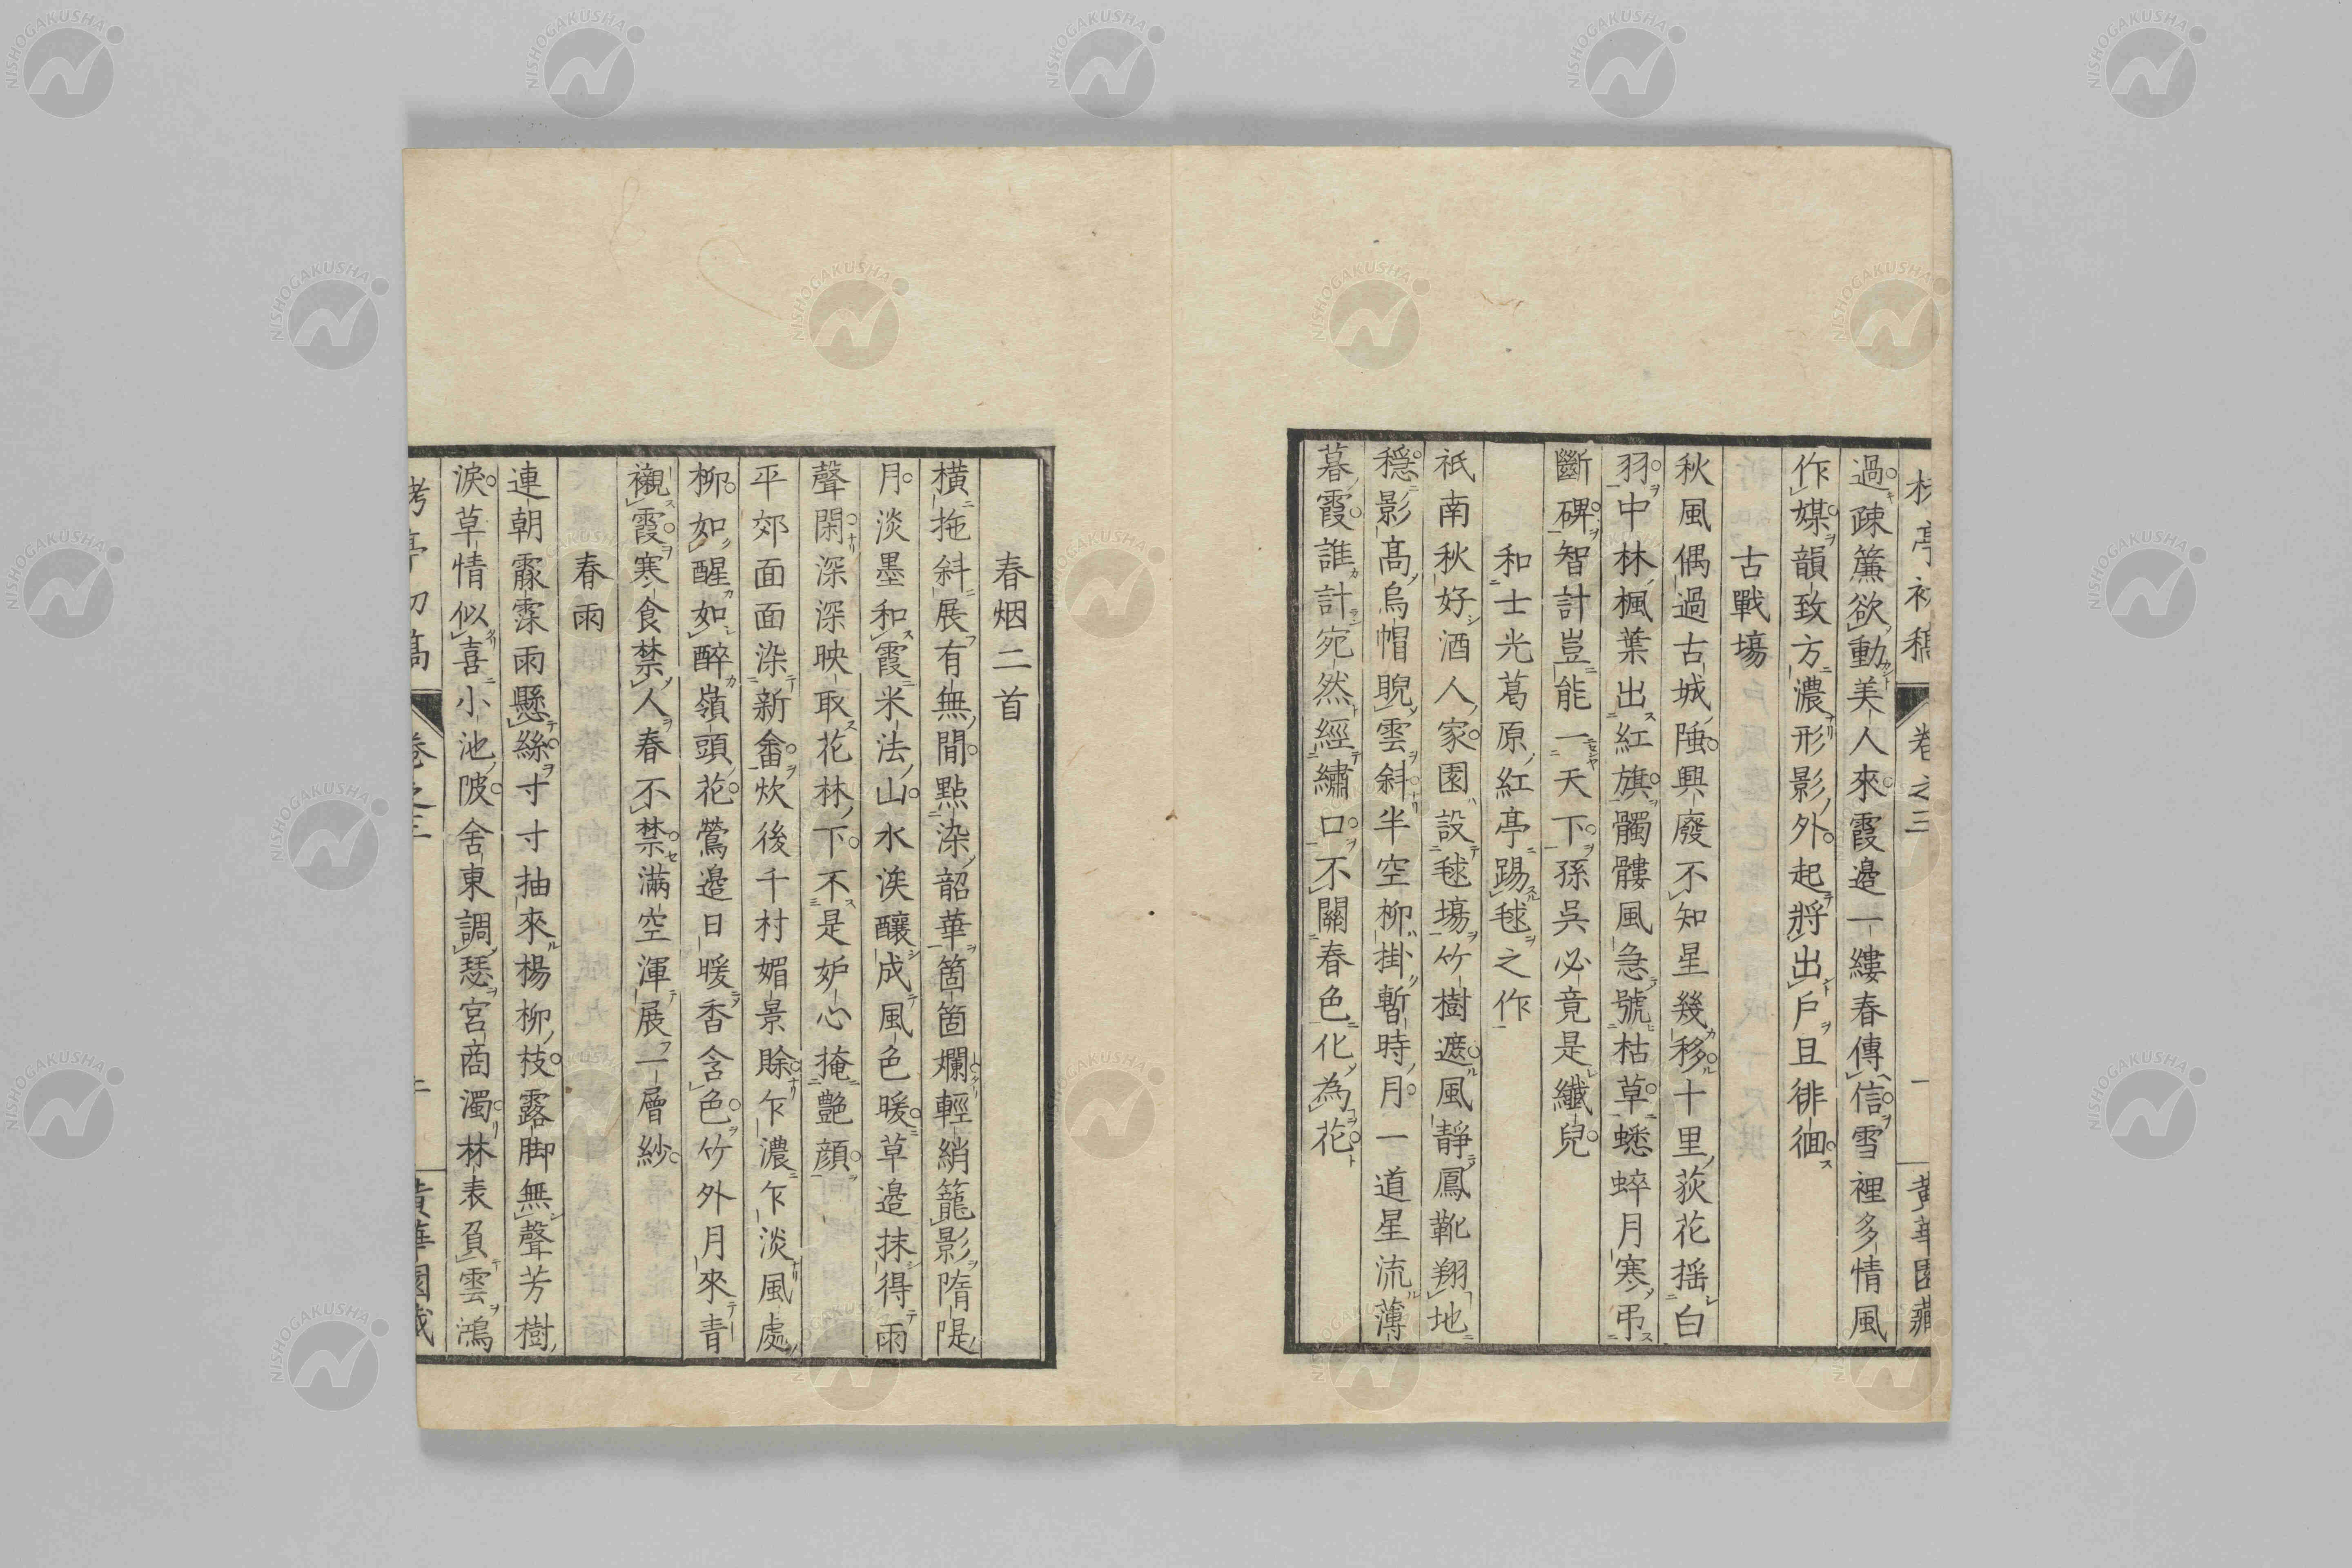 亭初稿 卷之三 一 黄華園藏
過疎簾欲動美人來霞邉一縷春傳信雪裡多情風
作媒韻致方濃形影外起將出戶且徘徊
古戰場
秋風偶過古城陲興廢不知星幾移十里荻花揺白
羽中林楓葉出紅旗髑髏風急號枯草蟋蟀月寒弔
斷碑智計豈能一天下孫吳必竟是纖兒
和士光葛原紅亭踢毬之作
祇南秋好酒人家園設毬場竹樹遮風靜鳳靴翔地
穩影髙烏帽睨雲斜半空柳掛暫時月一道星流薄
暮霞誰計計宛然經繡口不關春色化為花
春烟二首
橫拖斜展有無間點染韶華箇箇斕輕綃籠影隋隄
月淡墨和霞米法山水涘釀成風色暖草邉抹得雨
聲閑深深映取花林下不是妒心掩艶顔
平郊面面染新畬炊後千村媚景賒乍濃乍淡風處
柳如醒如醉嶺頭花鶯邉日暖香含色竹外月來青
襯霞寒食禁人春不禁滿空渾展一層紗
春雨
連朝霢霂雨懸絲寸寸抽來楊柳枝露脚無聲芳樹
淚草情似喜小池陂舍東調瑟宮商濁林表負雲鴻
亭初稿 卷之三 黄華園藏
NISHOGAKUSHA